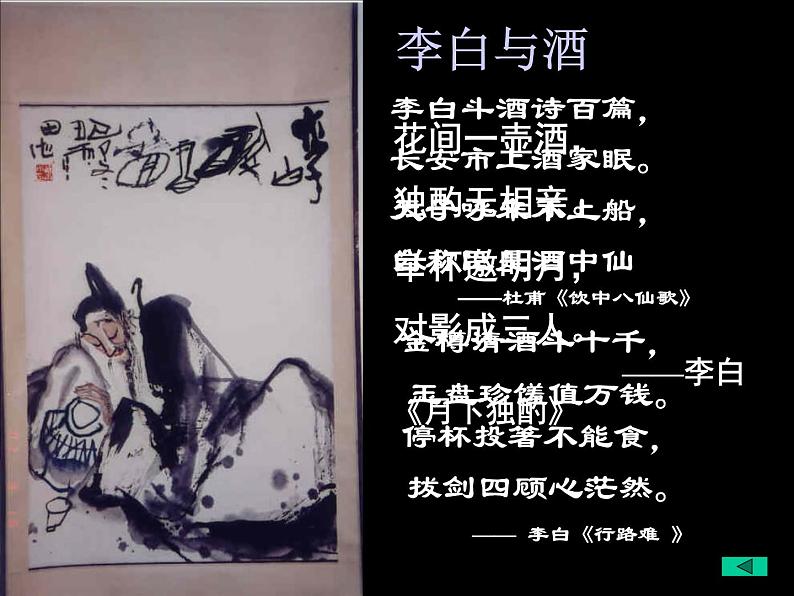 李白与酒
李白斗酒诗百篇，
长安市上酒家眠。
天子呼来不上船，
自称臣是酒中仙
——杜甫《饮中八仙歌》
花间一壶酒，
独酌无相亲。
举杯邀明月，
对影成三人。
——李白
《月下独酌》
金樽清酒斗十千，
玉盘珍馐值万钱。
停杯投著不能食，
拔剑四顾心茫然。
—— 李白《行路难 》